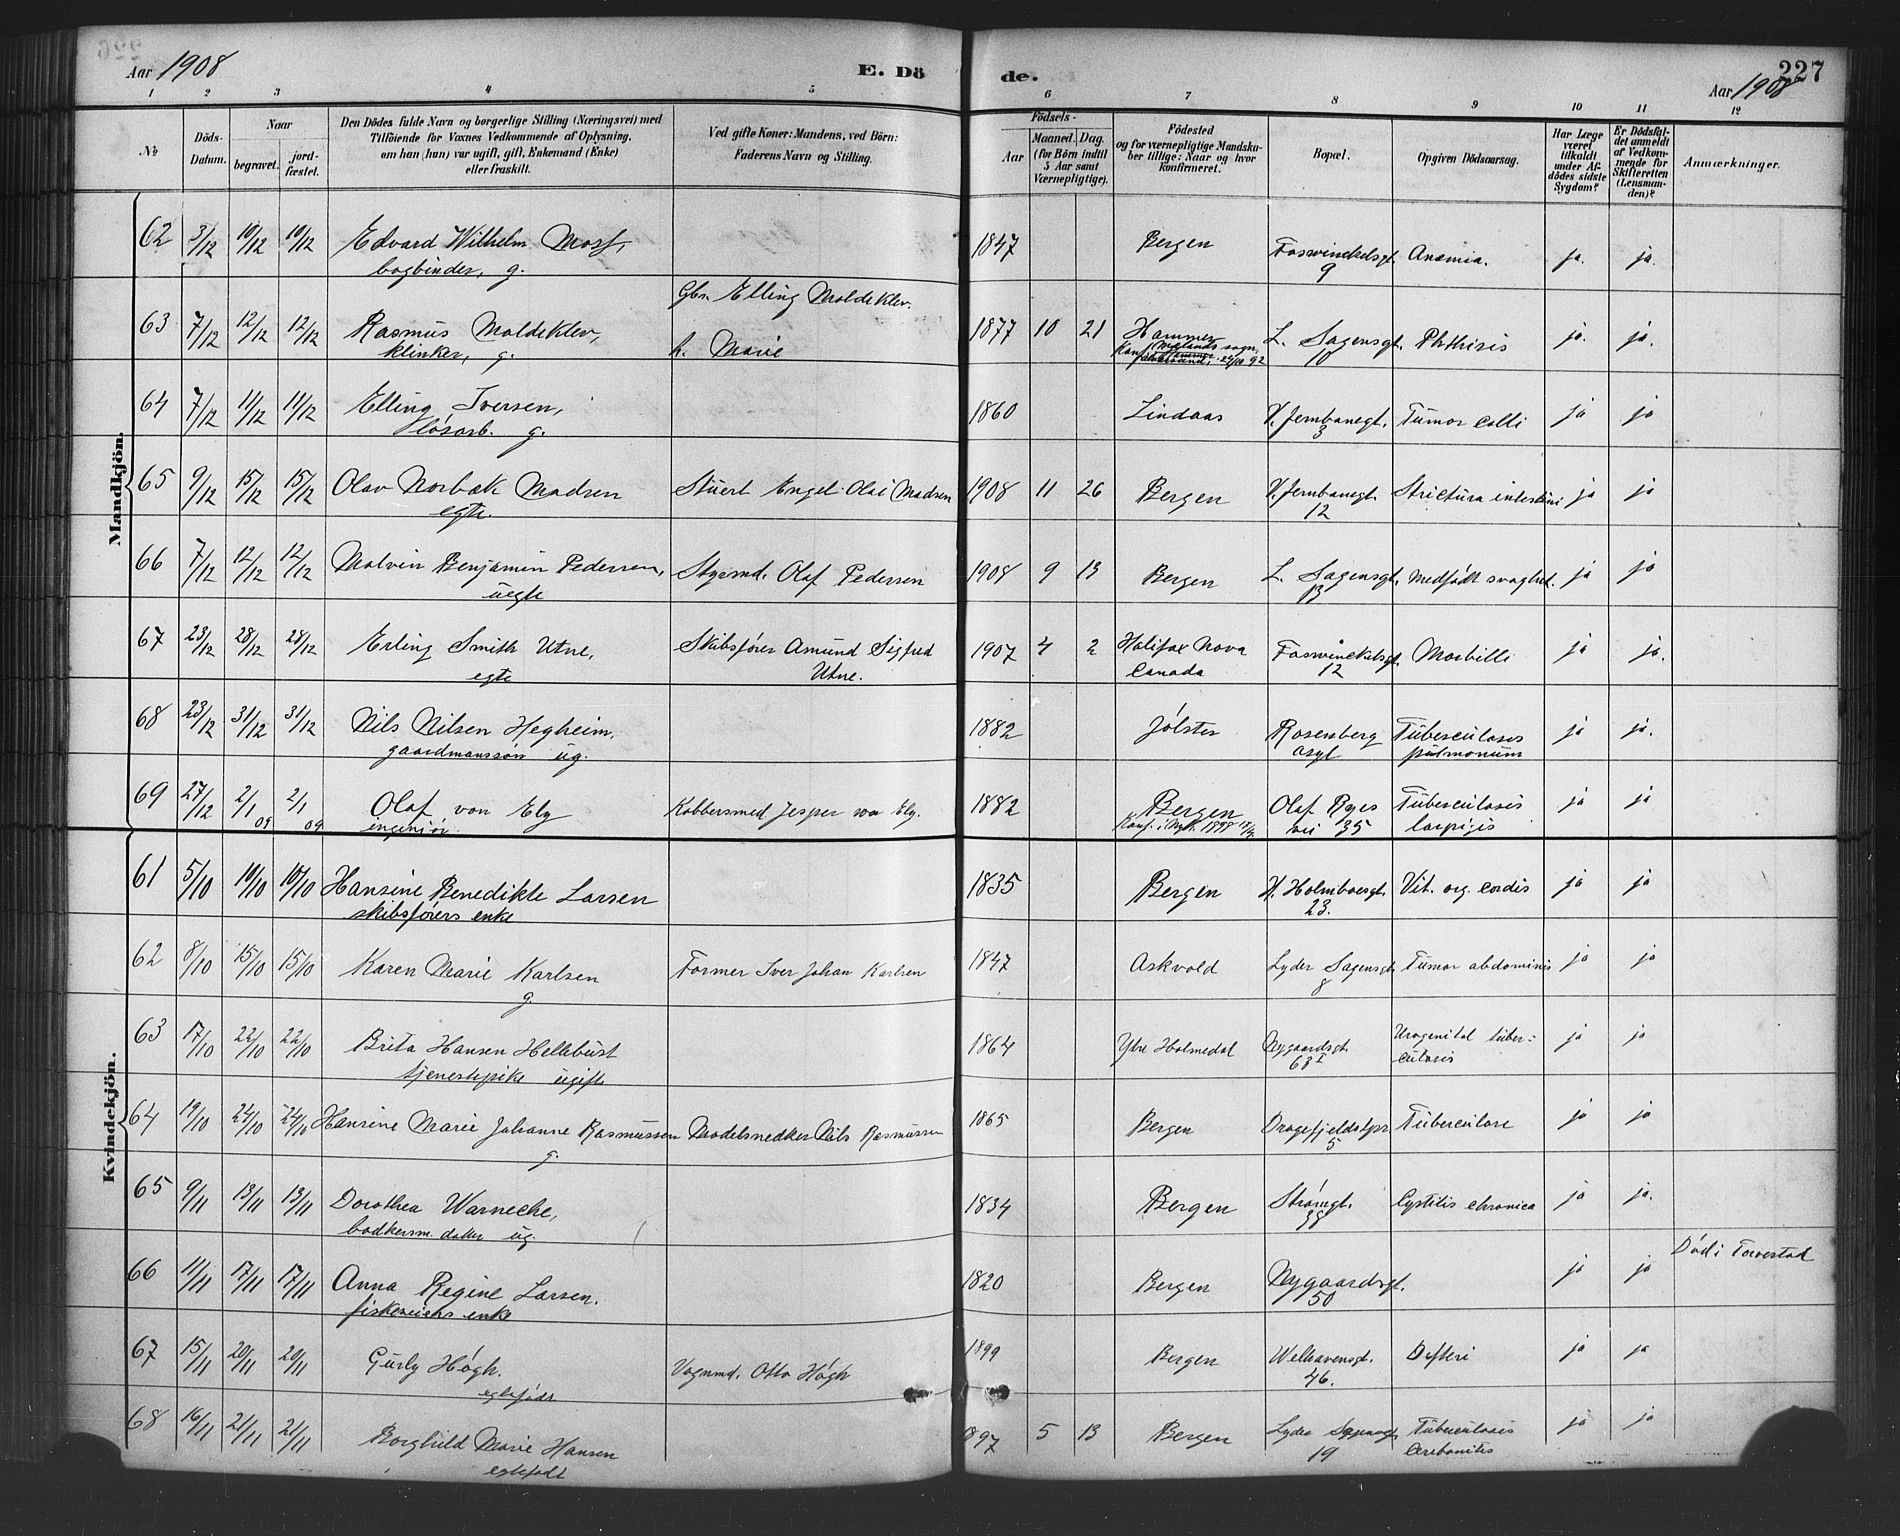 Aar 1908 E. Dö de. Aar 1908 227
1 2 3 4 5 6 7 8 9 10 11 12
No
Döds-Datum.
Naar begravet. jord-fæstet.
Den Dödes fulde Navn og borgerlige Stilling (Næringsvei) med
Tilföiende for Voxnes Vedkommende af Oplysning,
om han (hun) var ugift, gift, Enkemand (Enke)
eller fraskilt.
Ved gifte Koner: Mandens, ved Börn:
Faderens Navn og Stilling.
Födsels-
Aar Maaned. Dag.
(for Börn indtil 5 Aar samt Værnepligtige).
Födested
og for værnepligtige Mandska-
ber tillige: Naar og hvor
konfirmeret.
Bopæl.
Opgiven Dödsaarsag.
Har Læge været tilkaldt under Af-dödes sidste Sygdom?
Er Dödsfal-det anmeldt af Vedkom-mende for Skifteretten (Lensman-den)?
Anmærkninger.
Mandkjön.
62 3/12 10/12 10/12 Edvard Wilhelm 1847 Bergen Anæmia. ja. ja.
bogbinder, g. 9
Gbr. Elling Moldeklev.
63 7/12 12/12 12/12 Rasmus Moldeklev, h. Marie 1877 10 21 Hammer L. Sagensgt. Phthisis ja. ja.
klinker, g. 10
64 7/12 11/12 11/12 Elling Iversen, 1860 Lindaas V. Jernbanegt. Tumor colli ja ja
løsarb. g. 3
65 9/12 15/12 15/12 Olav Norbæk Madsen Stuert Engel Olai Madsen 1908 11 26 Bergen V. Jernbanegt. Strictura intestini ja ja
egte. 12
66 7/12 12/12 12/12 Malvin Benjamin Pedersen, Styrmd. Olaf Pedersen 1908 9 13 Bergen L. Sagensgt. Medfødt svaghed. ja ja
uegte 13
67 23/12 28/12 28/12 Erling Smith Utne, Skibsfører Amund Sigfred 1907 4 2 Halifax Nova Morbilli ja ja.
egte Utne. Canada 12
68 23/12 31/12 31/12 Nils Nilsen Hegheim, 1882 Jølster Rosenberg Tuberculosis ja ja.
gaardmanssøn ug. asyl pulmonum
69 27/12 2/1 09 2/1 09 Olaf von Ely Kobbersmed Jesper von Ely. 1882 Bergen Olaf Ryes Tuberculosis ja ja
ingeniør vei 35
Kvindekjön.
61 5/10 10/10 10/10 Hansine Benedikte Larsen 1835 Bergen H. Holmboesgt. Vit. org. cordis ja ja
skibsførers enke 23.
62 8/10 15/10 15/10 Karen Marie Karlsen Former Iver Johan Karlsen 1847 Askvold Lyder Sagensgt. Tumor abdominis ja ja
g. 8
63 17/10 22/10 22/10 Brita Hansen Hellebust 1864 Ytre Holmedal Nygaardsgt. Urogenital tuber-
tjenestepike ugift 63 I culosis ja ja
64 19/10 24/10 24/10 Hansine Marie Johanne Rasmussen Modelsnedker Nils Rasmussen 1865 Bergen Tuberculose ja ja
g. 5
65 9/11 13/11 13/11 Dorothea Warnecke, 1834 Bergen Strømgt. Cystitis chronica ja ja.
bødkerm. datter ug.
66 11/11 17/11 17/11 Anna Regine Larsen. 1820 Bergen Nygaardsgt. ja ja Død i Torvestad
enke 50
67 15/11 20/11 20/11 Gurly Høgh. Vognmd. Otto Høgh 1899 Bergen Welhavensgt. Difteri ja ja
egtefødt 46.
68 16/11 21/11 21/11 Borghild Marie Hansen 1897 5 13 Bergen Lyder Sagensgt Tuberculosis ja ja
egtefødt 19